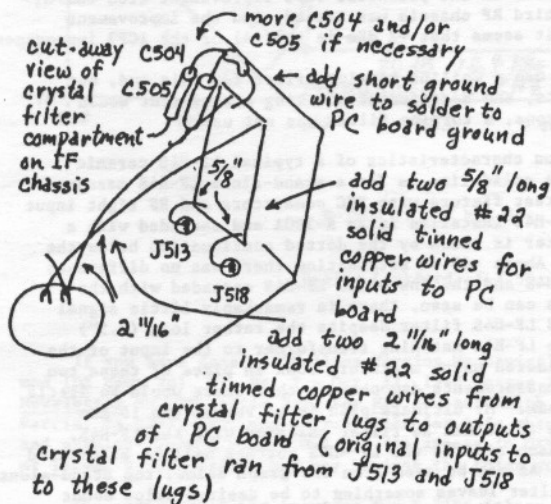 move C504 and/or
C505 if necessary
cut-away
view of
crystal
filter
compartment
on IF
chassis
C504
C505
add short ground
wire to solder to
PC board ground
5/8"
add two 5/8" long
insulated #22
solid tinned
copper wires for
inputs to PC
board
J513
J518
2 11/16"
add two 2 11/16 long
insulated #22 solid
tinned copper wires from
crystal filter lugs to outputs
of PC board (original inputs to
crystal filter ran from J513 and J518
to these lugs)